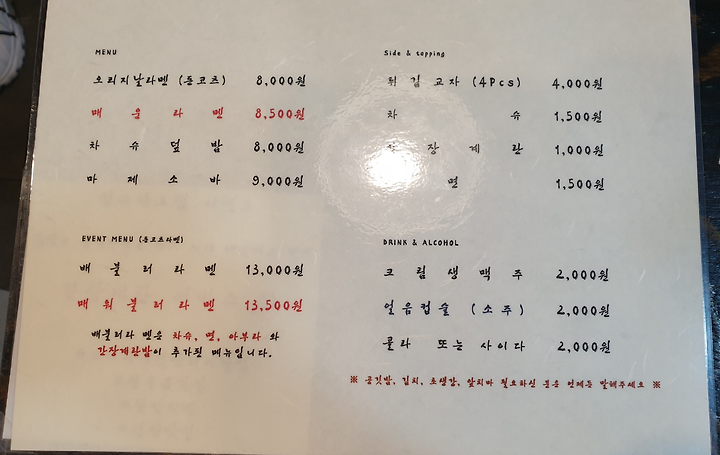 MENU
오리지날라멘 (돈코츠) 8,000원
매운라멘 8,500원
차슈덮밥 8,000원
마제소바 9,000원
EVENT MENU (돈코츠라멘)
배불러라멘 13,000원
매워불러라멘 13,500원
배불러라 멘은 차슈, 면, 아부라 와
간장계란밥이 추가된 메뉴입니다.
Side & topping
튀김교자 (4Pcs) 4,000원
차슈 1,500원
장계란 1,000원
면 1,500원
DRINK & ALCOHOL
크림생맥주 2,000원
얼음컵술 (소주) 2,000원
콜라 또는 사이다 2,000원
※ 공깃밥, 김치, 초생강, 앞치마 필요하신 분은 언제든 말해주세요 ※